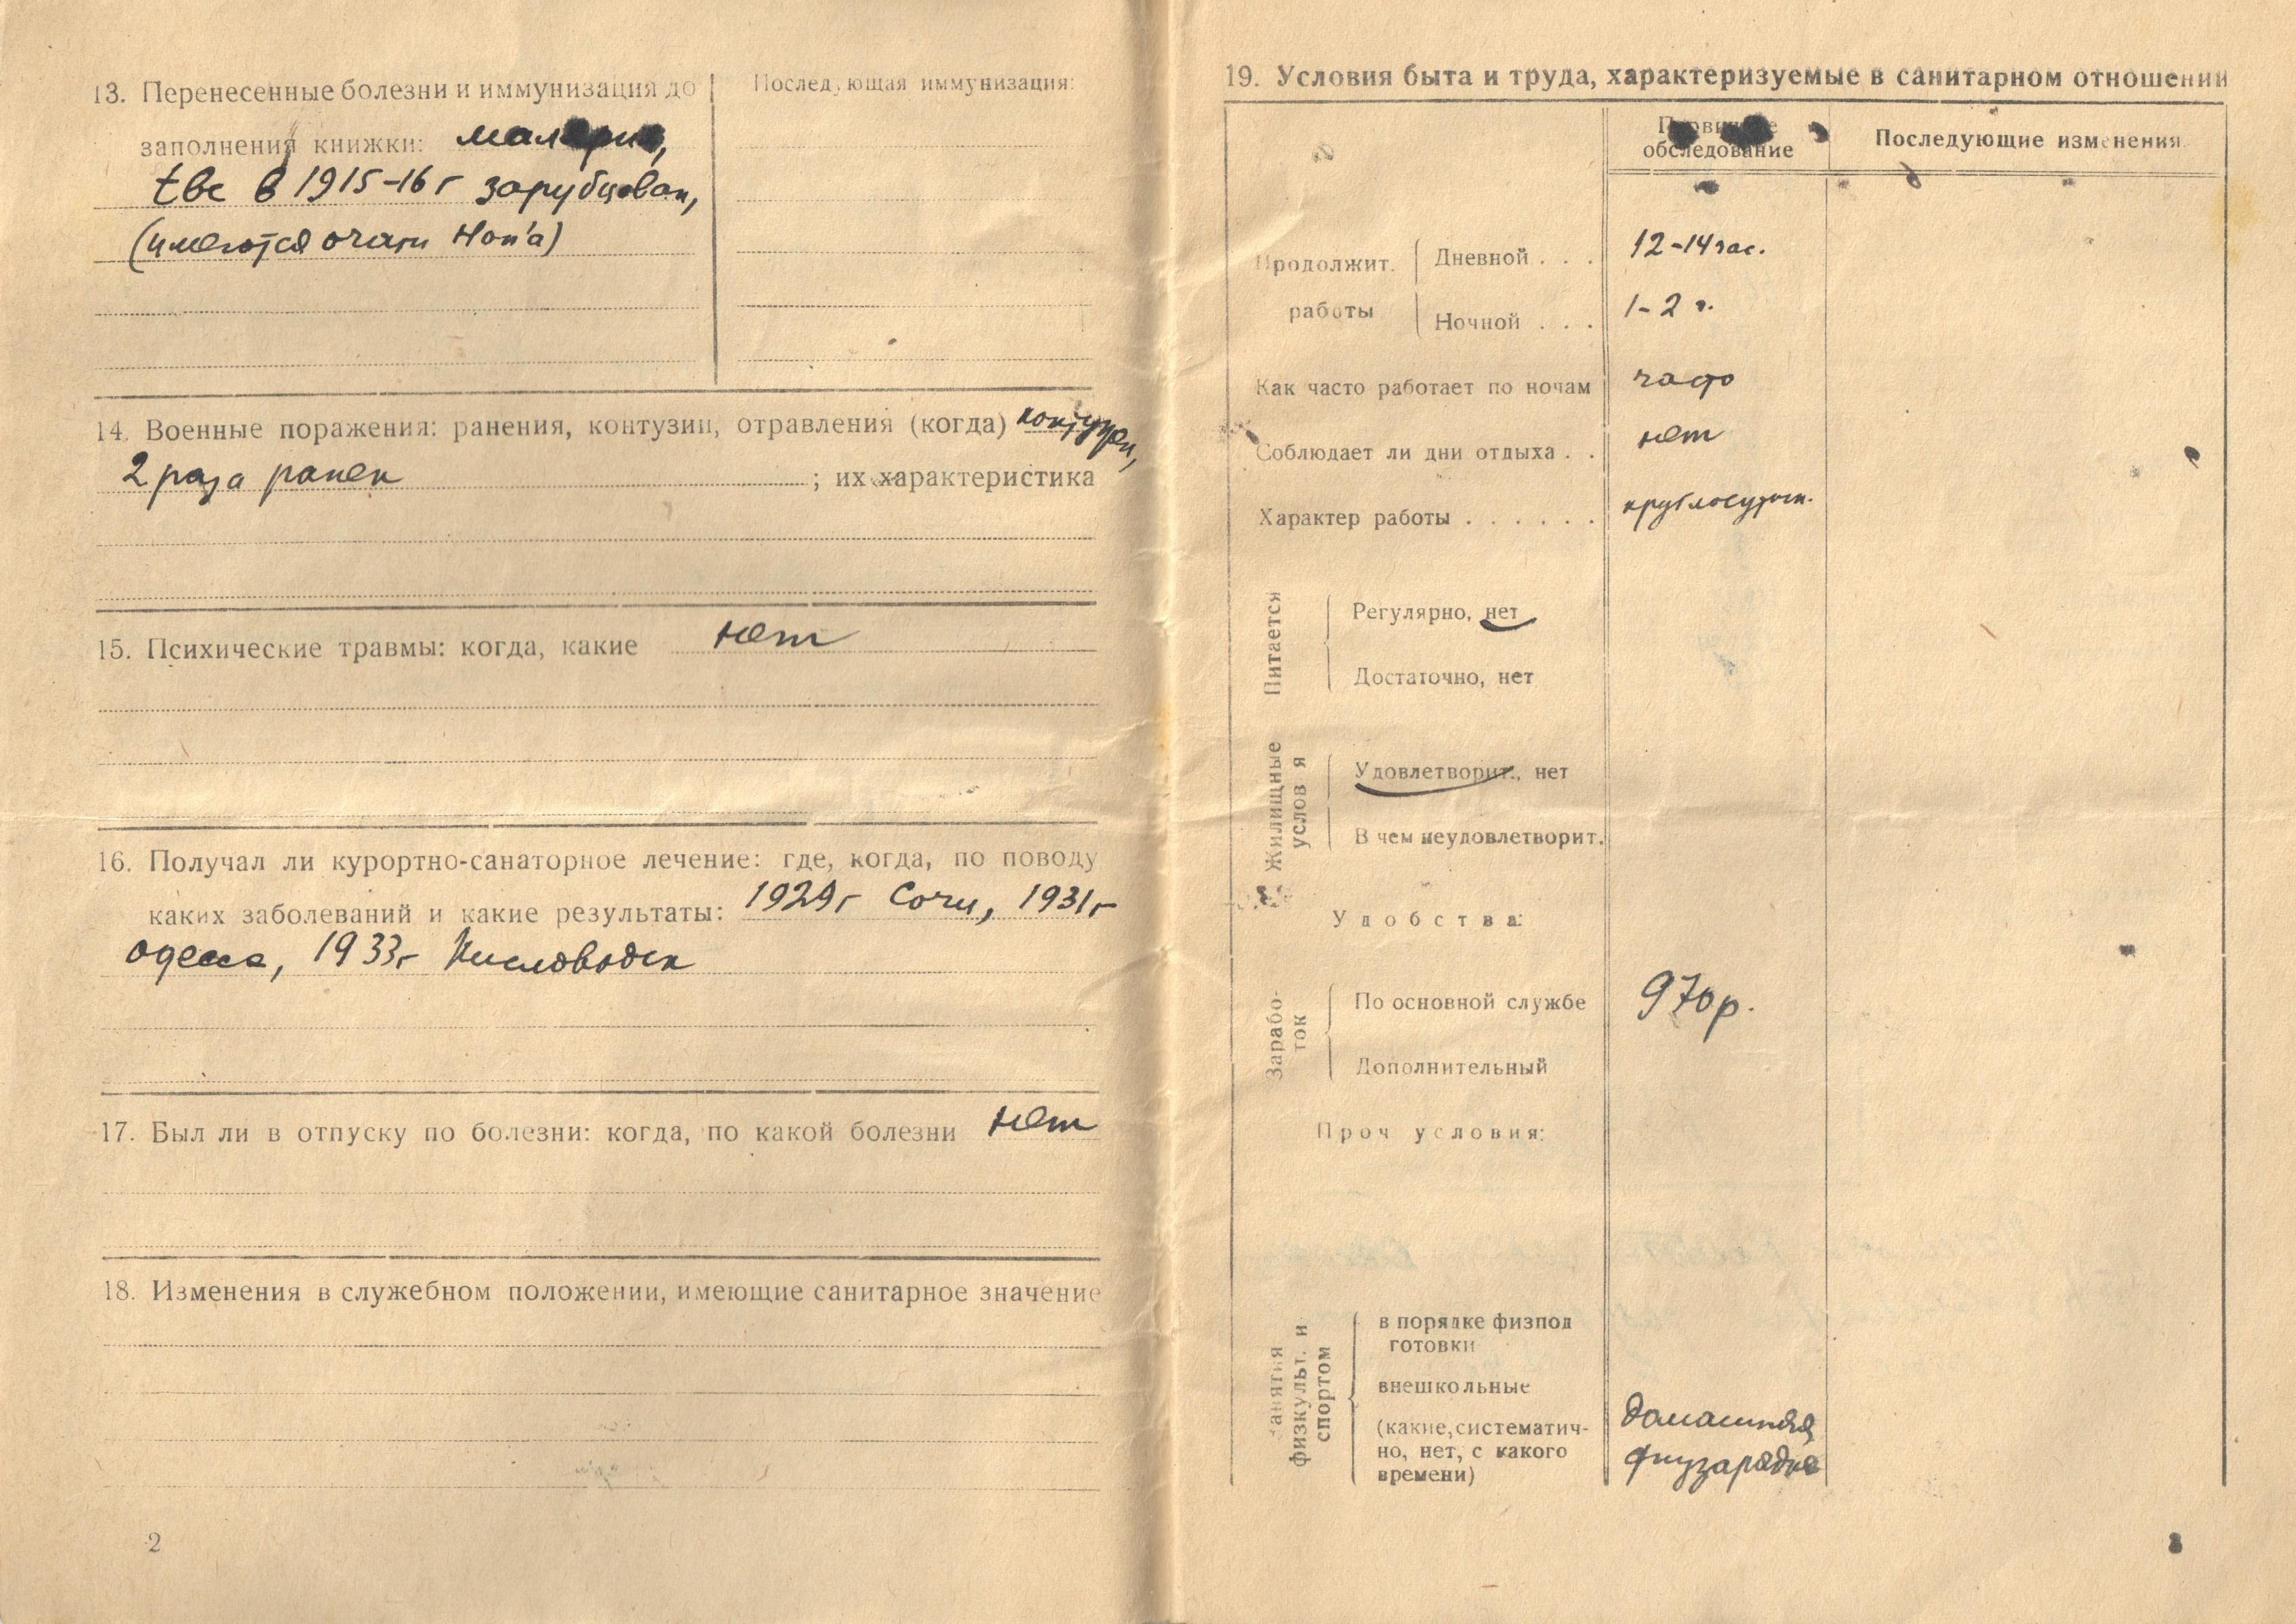 13. Перенесенные болезни и иммунизация до
заполнения книжки: малярия,
tbc в 1915-16 г зарубцован,
(имеются очаги Hon'a)
Последующая иммунизация:
14. Военные поражения: ранения, контузии, отравления (когда) контужен,
2 раза ранен ; их характеристика
15. Психические травмы: когда, какие нет
16. Получал ли курортно-санаторное лечение: где, когда, по поводу
каких заболеваний и какие результаты: 1929г Сочи, 1931г
Одесса, 1933г Кисловодск
17. Был ли в отпуску по болезни: когда, по какой болезни нет
18. Изменения в служебном положении, имеющие санитарное значение
2
19. Условия быта и труда, характеризуемые в санитарном отношении
Первичное
обследование
Последующие изменения
Продолжит.
работы
Дневной . . . 12-14 час.
Ночной . . . 1-2 ч.
Как часто работает по ночам часто
Соблюдает ли дни отдыха . . нет
Характер работы . . . . . . круглосуточн.
Питается
Регулярно, нет
Достаточно, нет
Жилищные
услов я
Удовлетворит., нет
В чем неудовлетворит.
Удобства:
Зарабо-
ток
По основной службе 970р.
Дополнительный
Проч условия:
Занятия
физкульт. и
спортом
в порядке физпод
готовки
внешкольные
(какие, систематич-
но, нет, с какого
времени)
домашняя
физзарядка
3